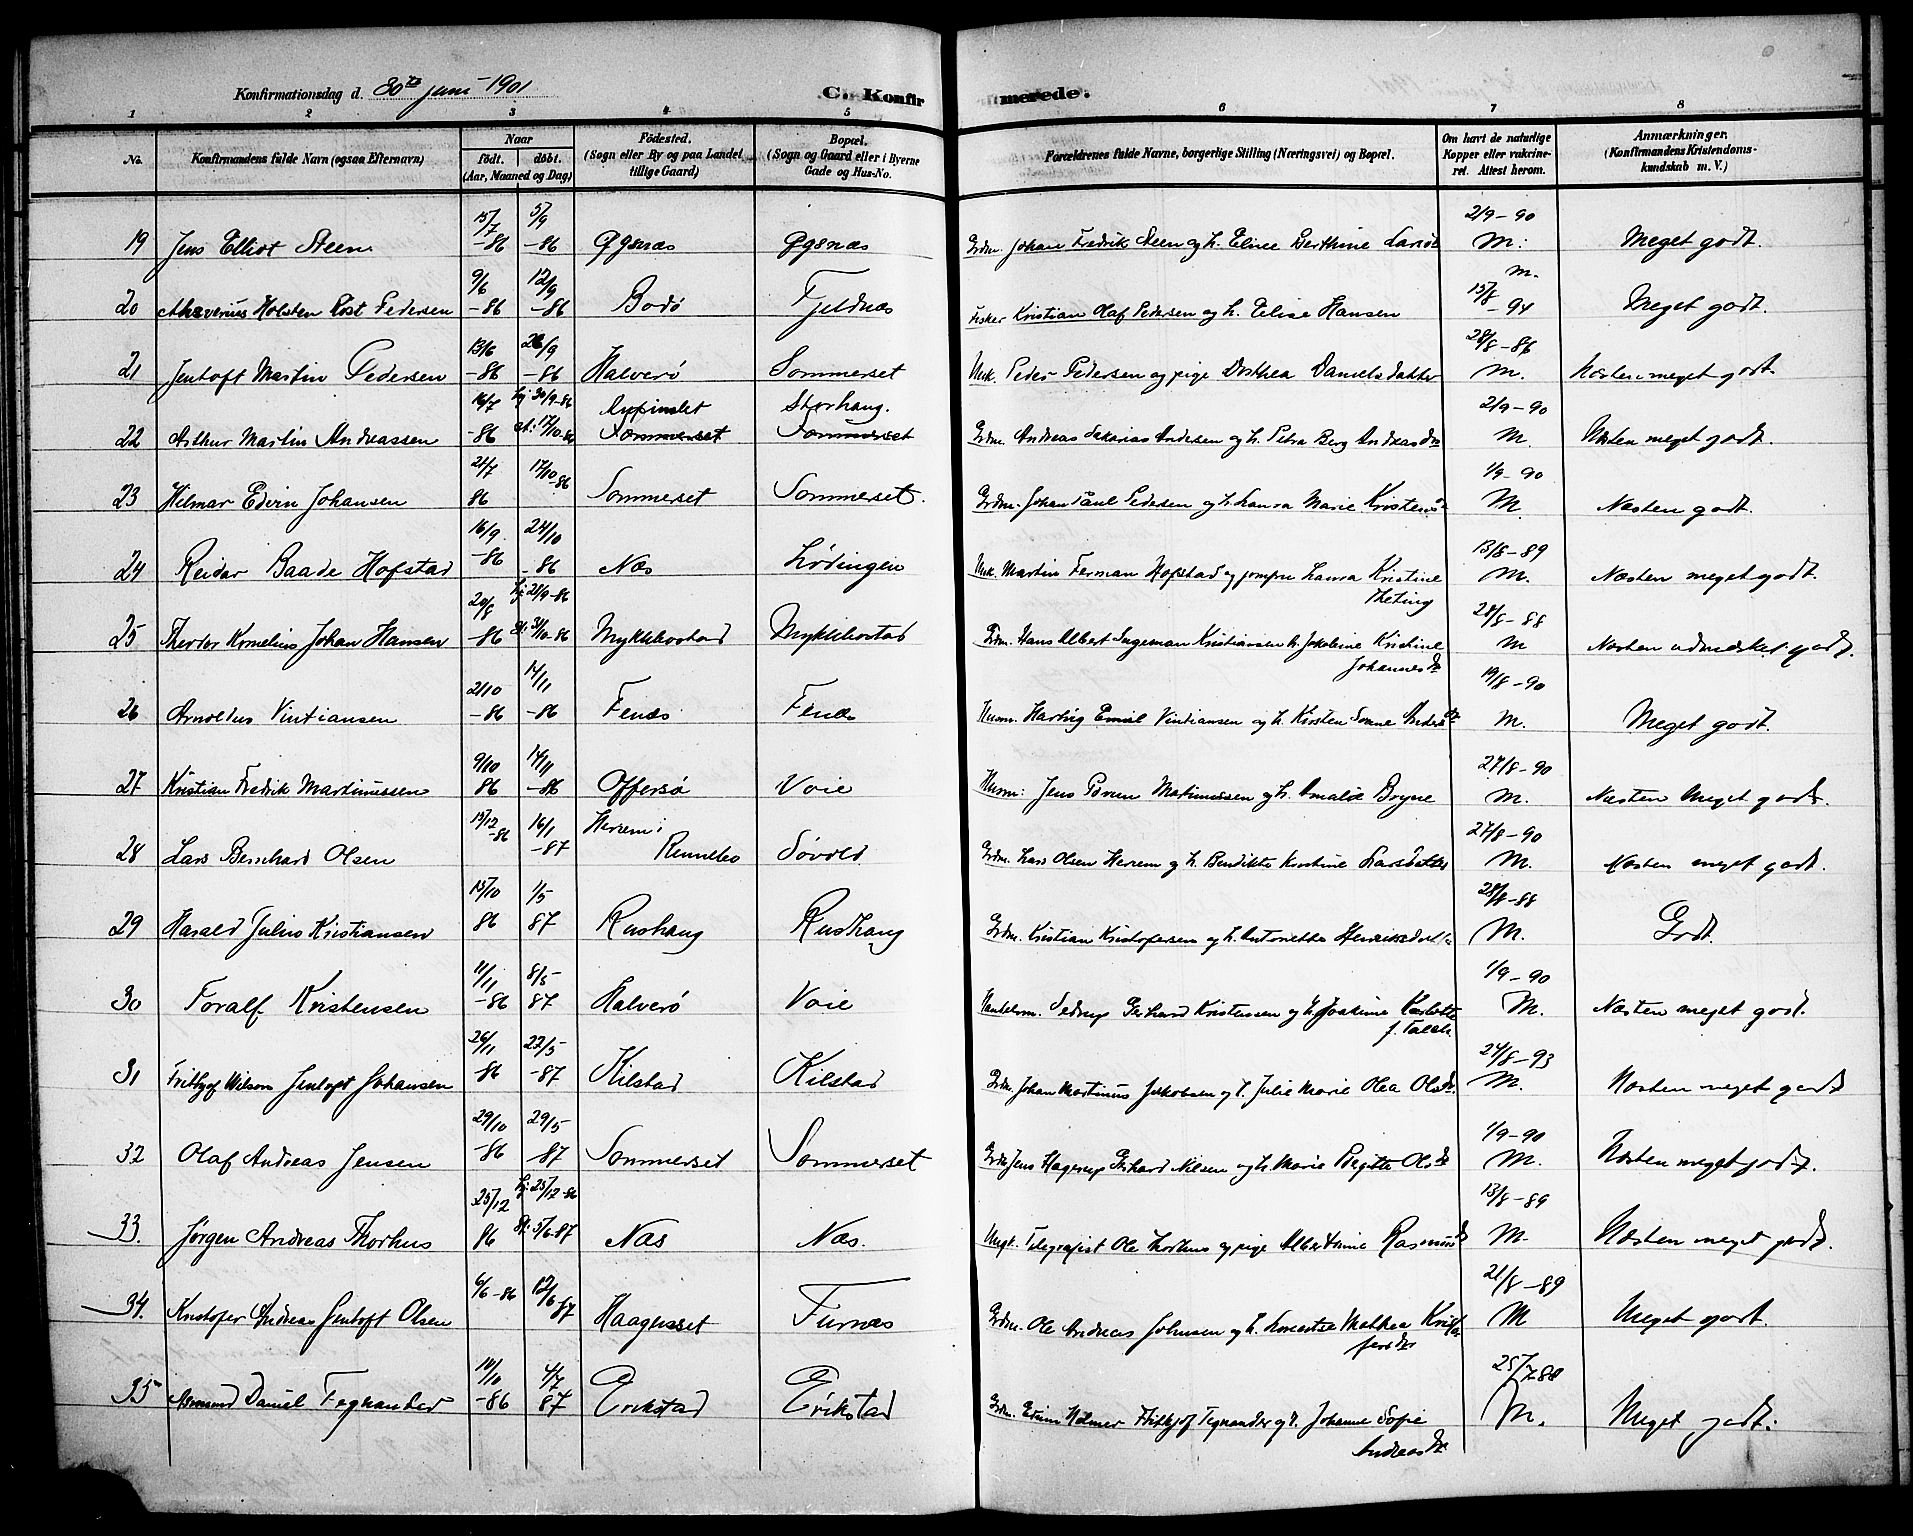 Konfirmationsdag d. 30te juni 1901 C. Konfirmerede.
1 2 3 4 5 6 7 8
No. Konfirmandens fulde Navn (ogsaa Efternavn) Naar født. døbt. (Aar, Maaned og Dag) Fødested. (Sogn eller By og paa Landet tillige Gaard) Bopæl. (Sogn og Gaard eller i Byerne Gade og Hus-No. Forældrenes fulde Navne, borgerlige Stilling (Næringsvei) og Bopæl. Om havt de naturlige Kopper eller vakcineret. Attest herom. Anmærkninger. (Konfirmandens Kristendomskundskab m. V.)
19 Jens Elliot Steen 15/7 -86 5/9 -86 Øgsnæs Øgsnæs Grdm. Johan Fredrik Steen og h. Elise Berthine 2/9-90 M. Meget godt.
20 Holsten Rost Pedersen 9/6 -86 12/9 -86 Bodø Fjeldnæs Fisker Kristian Olaf Pedersen og h. Elise Hansen m. 15/8 -94 Meget godt.
21 Jentoft Martin Pedersen 13/6 -86 26/9 -86 Halverø Sommerset Unk. Peder Pedersen og pige Dorthea Danielsdatter 28/8-86 M. Næsten meget godt.
22 Arthur Martin Andreassen 16/7 -86 hj 20/9-86 st: 17/10-86 Sommerset Storhaug. Sommerset Grdm. Andreas Sakarias Andersen og h. Petra Berg Andreasdr 2/9-90 M. Næsten meget godt.
23 Hilmar Edvin Johansen 21/7 86 17/10 86 Sommerset Sommerset. Grdm. Johan Paul Pedersen og h. Laura Marie 1/9-90 M. Næsten godt.
24 Reidar Baade Hofstad 16/9 -86 24/10 -86 Næs Lødingen Unk. Martin Ferman Hofstad og jomfru Laura Kristine Theting 13/8-89 M. Næsten meget godt.
25 Theodor Kornelius Johan Hansen 20/8 -86 hj 21/9-86 st: 31/10-86 Myklebostad Myklebostad Grdm. Hans Albert Ingeman Kristiansen h. Jakobine Kristine Johannesdr 28/8-88 M Næsten udmærket godt.
26 Arnoldus Vintiansen 2/10 -86 14/11 -86 Fenæs Fenæs Husm. Hartvig Emil Vintiansen og h. Kirsten 19/8-90 M. Meget godt.
27 Kristian Fredrik Martinussen 9/10 86 14/11 -86 Offersø Voie Husm: Jens Martinussen og h. Amalie Bryne 27/8-90 M. Næsten Meget godt.
28 Lars Bernhard Olsen 15/12 -86 16/1 -87 Herrem i Rennebo Søvold Grdm. Lars Olsen Herrem og h. Bendikte Kirstine Larsdatter 27/8-90 M. Næsten meget godt.
29 Harald Julius Kristiansen 15/10 86 1/5 87 Rushaug Rushaug Grdm. Kristian Kristofersen og h. Antonette 28/8-88 M. Godt.
30 Toralf Kristensen 11/11 -86 8/5 87 Halverø Voie Handelsm. Sedrup Gerhard Kristensen og h. Joakime f. Falch 1/9-90 M. Næsten meget godt.
31 Frithjof Wilson Jentoft Johansen 26/11 86 22/5 -87 Kilstad Kilstad Grdm. Johan Martinus Jakobsen og h. Julie Marie Olea Olsdr. 24/8-93 M. Næsten meget godt
32 Olaf Andreas Jensen 29/10 -86 29/5 -87 Sommerset Sommerset Jens Hagerup Gerhard Nilsen og h. Marie Birgitte Olsdr 1/9-90 M. Næsten meget godt.
33. Jørgen Andreas Thorhus 25/12 86 hj 25/12-86 st: 5/6-87 Næs Næs. Ungk. Telegrafist Ole Thorhus og pige Albertine Rasmusdr 13/8-89 M. Næsten meget godt.
34. Kristofer Andreas Jentoft Olsen 6/6-86 12/6 87 Haagensset Furnæs Grdm. Ole Andreas Johnsen og h. Mathea Kristofersdr 21/8-89 M Meget godt.
35 Asmund Daniel Tegnander 10/10 -86 4/7 87 Erikstad Erikstad Grdm. Edvin Holmer Frithjof Tegnander og h. Johanne Sofie Andreasdr 25/7-88 M. Meget godt.